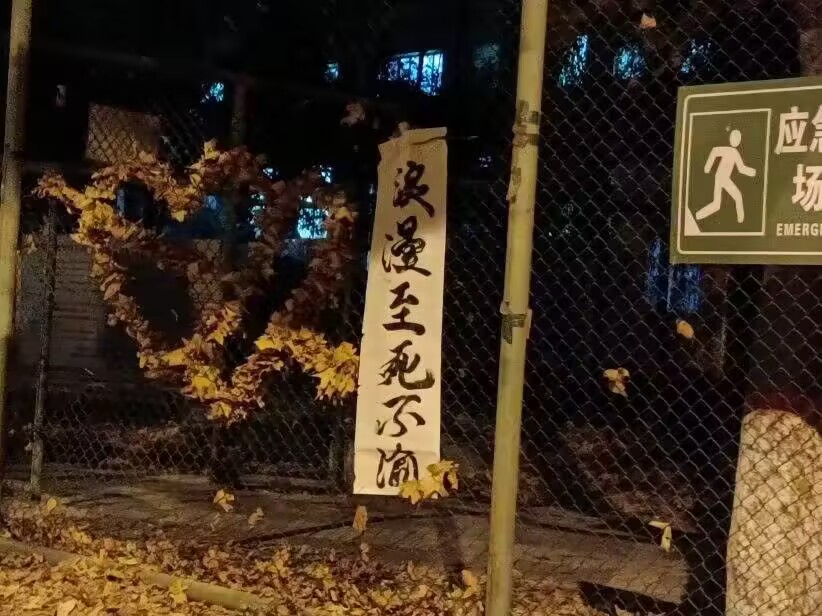 浪漫至死不渝
应急
场
EMERGE